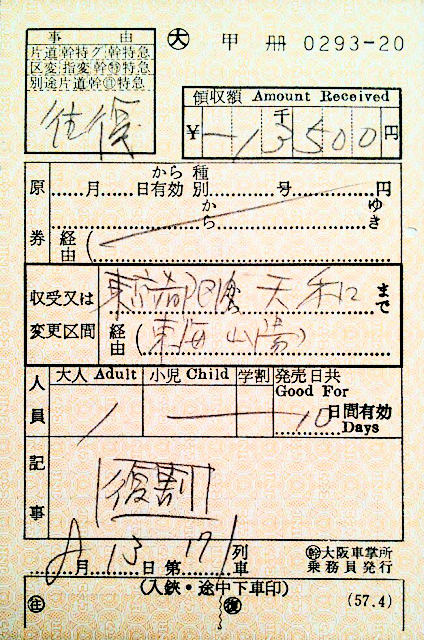 事由 ㊛大 甲 册 0293-20
片道幹特グ幹特急
区変指変幹㊕特急
別途片道幹特急
往復
領収額 Amount Received
千
¥ 13500円
から 種
原 ......月......日有効 別......号......円
から ゆき
券 経由(
収受又は 東京都区内 天和 まで
変更区間 経由(東海 山陽)
人員 大人 Adult 小児 Child 学割 発売日共
Good For
1 10日間有効
Days
記事 復割
月13日第17列車 ㊎大阪車掌所
乗務員発行
(入鋏・途中下車印)
㊟ ㊢ (57.4)